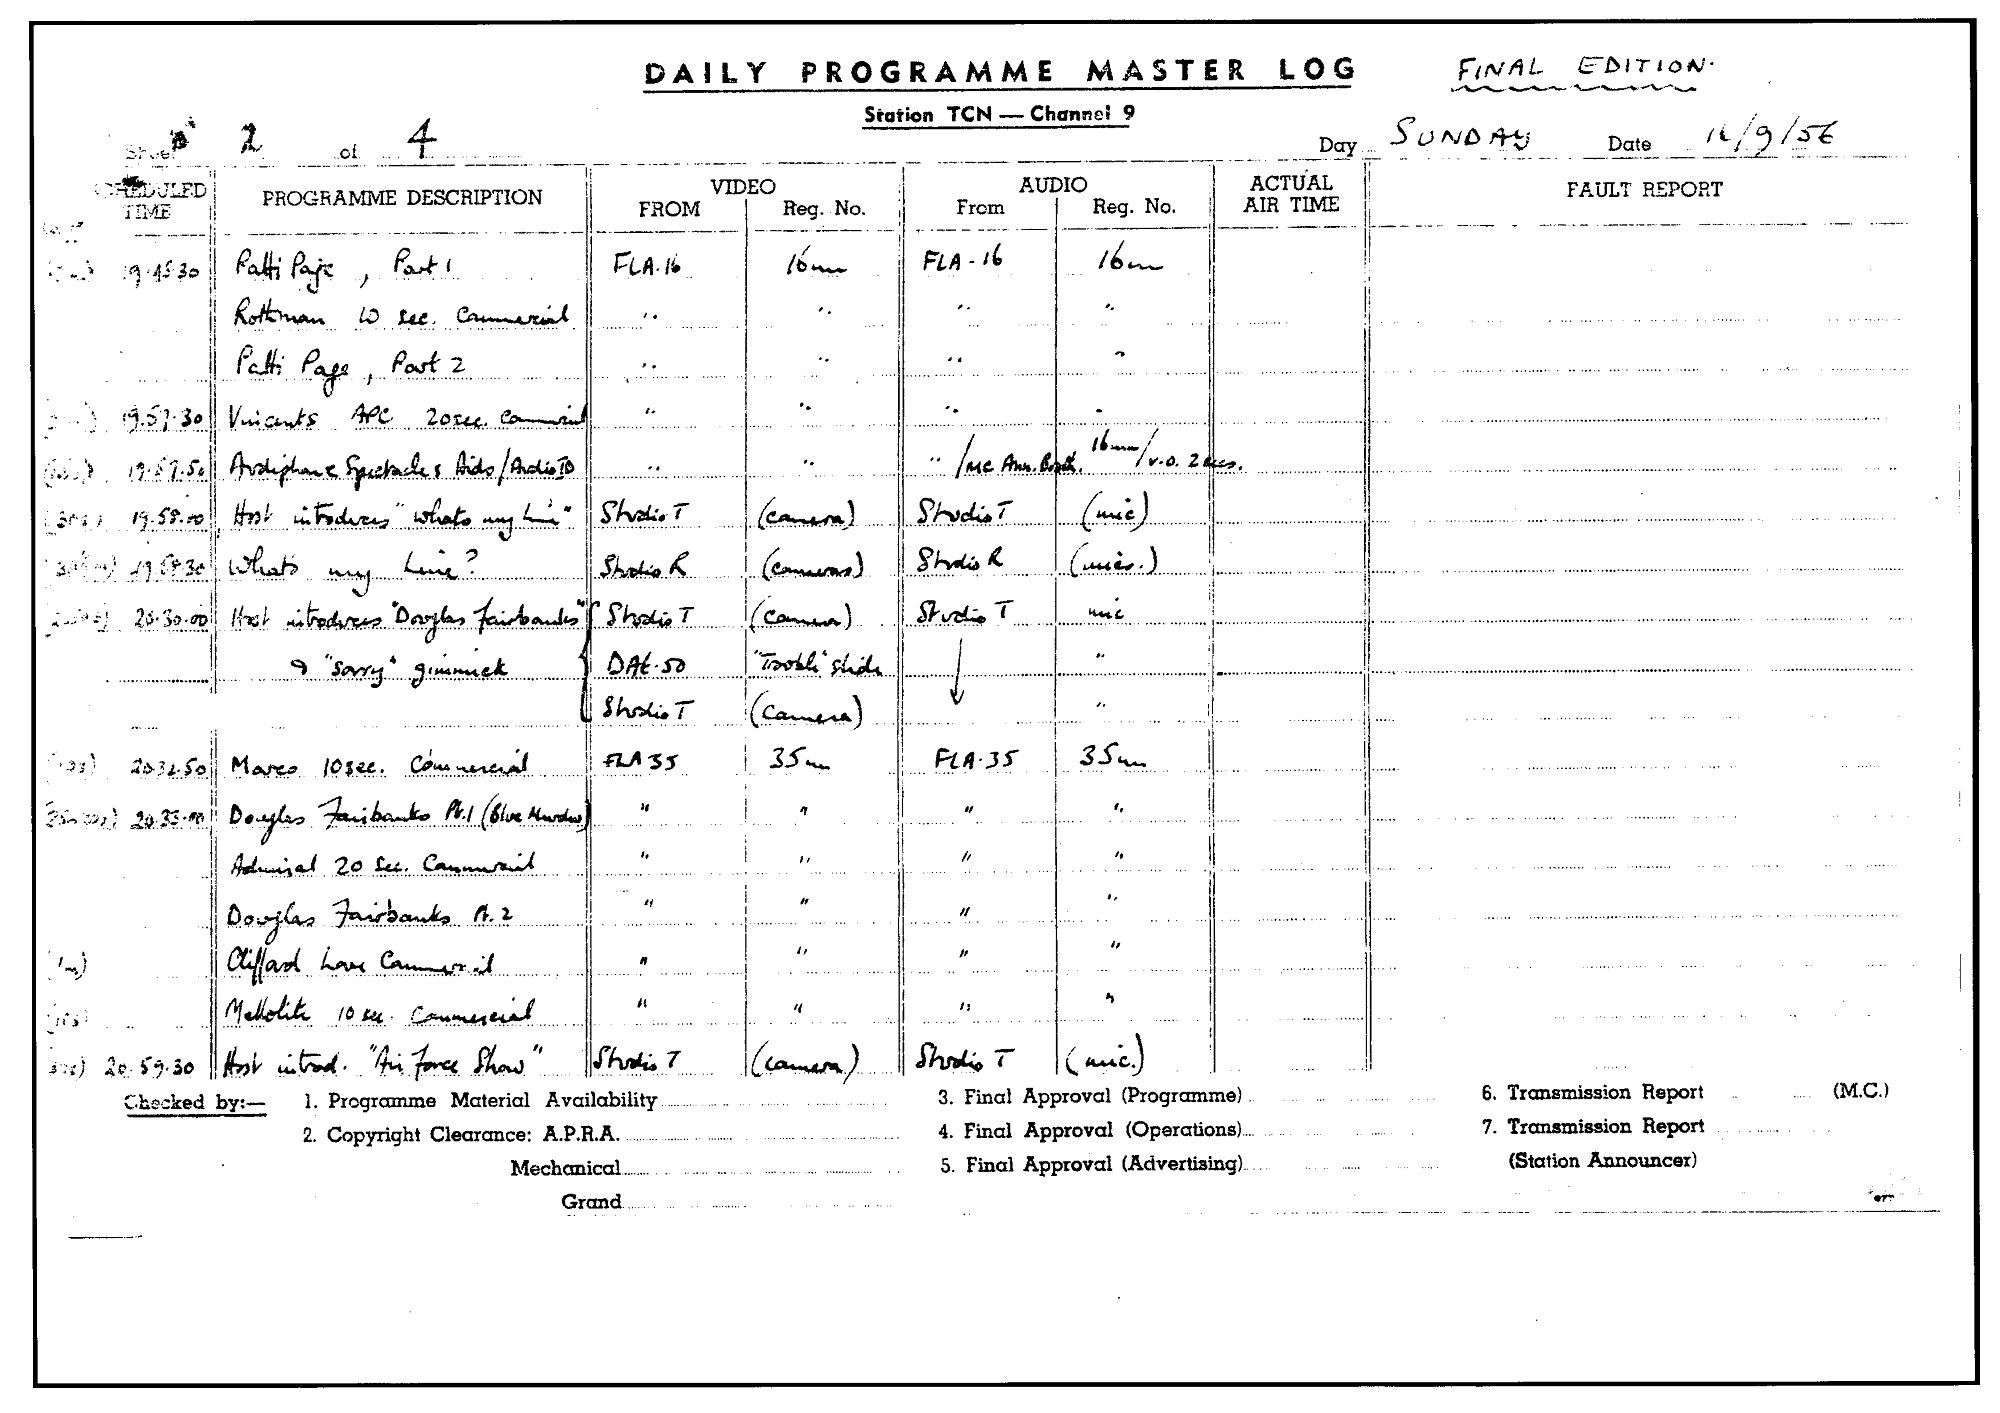 DAILY PROGRAMME MASTER LOG FINAL EDITION.
Station TCN — Channel 9
2 of 4 Day SUNDAY Date 16/9/56
SCHEDULED TIME PROGRAMME DESCRIPTION VIDEO FROM Reg. No. AUDIO From Reg. No. ACTUAL AIR TIME FAULT REPORT
19.45.30 Patti Page, Part 1 FLA.16 16mm FLA-16 16mm
Rothman 10 sec. Commercial " " " "
Patti Page, Part 2 " " " "
19.57.30 Vincents APC 20 sec. Commercial " " " "
19.57.50 Audiphone Spectacles Aids/Audio ID " " " /MC Ann. Booth. 16mm/v.o. 2 secs.
(30s) 19.58.00 Host introduces "Whats my Line" Studio T (camera) Studio T (mic)
19.58.30 Whats my Line? Studio R (cameras) Studio R (mics.)
20.30.00 Host introduces "Douglas Fairbanks" Studio T (camera) Studio T mic
& "sorry" gimmick DAE.50 "Trouble" slide "
Studio T (camera) "
(10s) 20.32.50 Marco 10 sec. Commercial FLA 35 35mm FLA.35 35mm
20.33.00 Douglas Fairbanks Pt.1 (Blue Murder) " " " "
Admiral 20 sec. Commercial " " " "
Douglas Fairbanks Pt.2 " " " "
(1m) Clifford Love Commercial " " " "
(10s) 10 sec. Commercial " " " "
20.59.30 Host introd. "Air Force Show" Studio T (camera) Studio T (mic.)
Checked by:— 1. Programme Material Availability 3. Final Approval (Programme) 6. Transmission Report (M.C.)
2. Copyright Clearance: A.P.R.A. 4. Final Approval (Operations) 7. Transmission Report
Mechanical 5. Final Approval (Advertising) (Station Announcer)
Grand